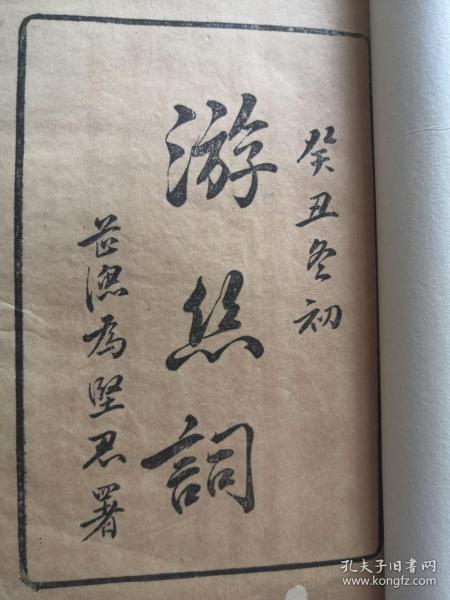 癸丑冬初
游丝詞
芷渔為堅君署
孔夫子旧书网
www.kongfz.com